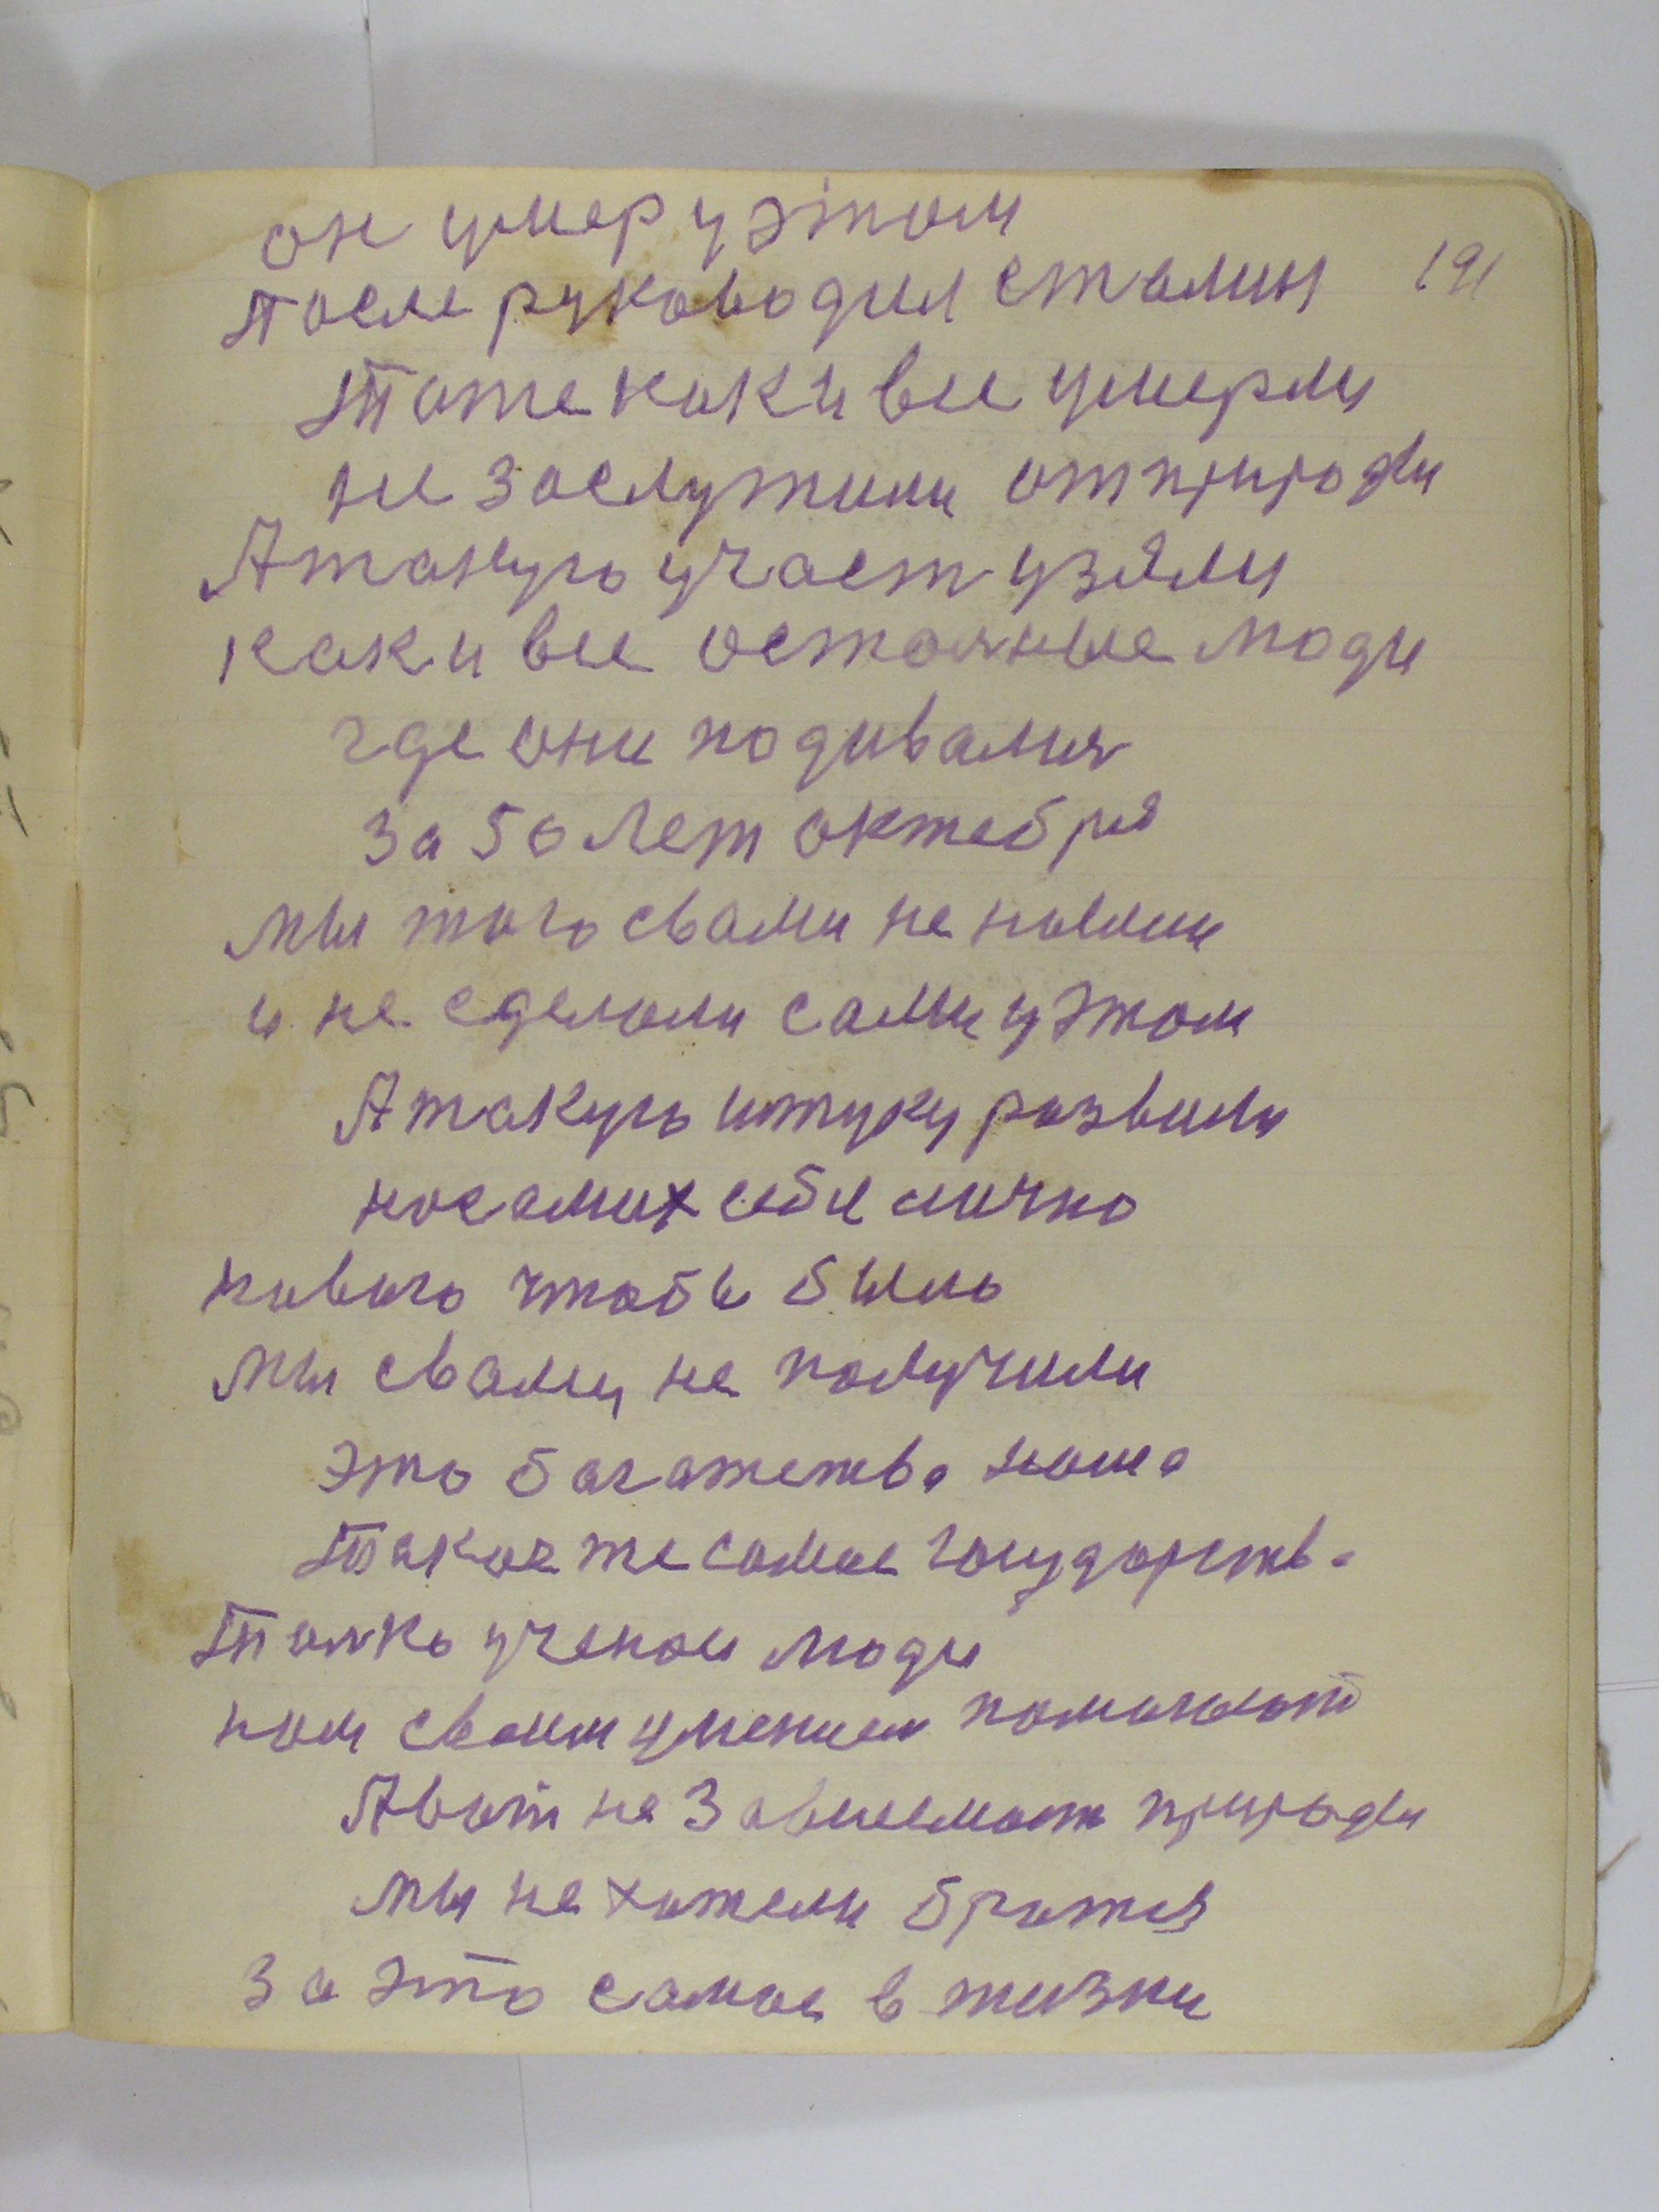 он умер у этом
191
после руководил сталин
Тоже как и все умерли
не заслужили от природы
А такую участ узяли
как и все остачные люди
где они подивалися
За 50 лет октебря
мы того свами не нашли
и не сделали сами у этом
А такую штуку развили
на самих себе лично
нового чтобы было
мы свами не получили
это богатжства наша
Такое же самое государства
Толко ученои люди
нам своим умением помагают
А вот не Зависемост природы
мы не хотели братця
За это самое в жизни